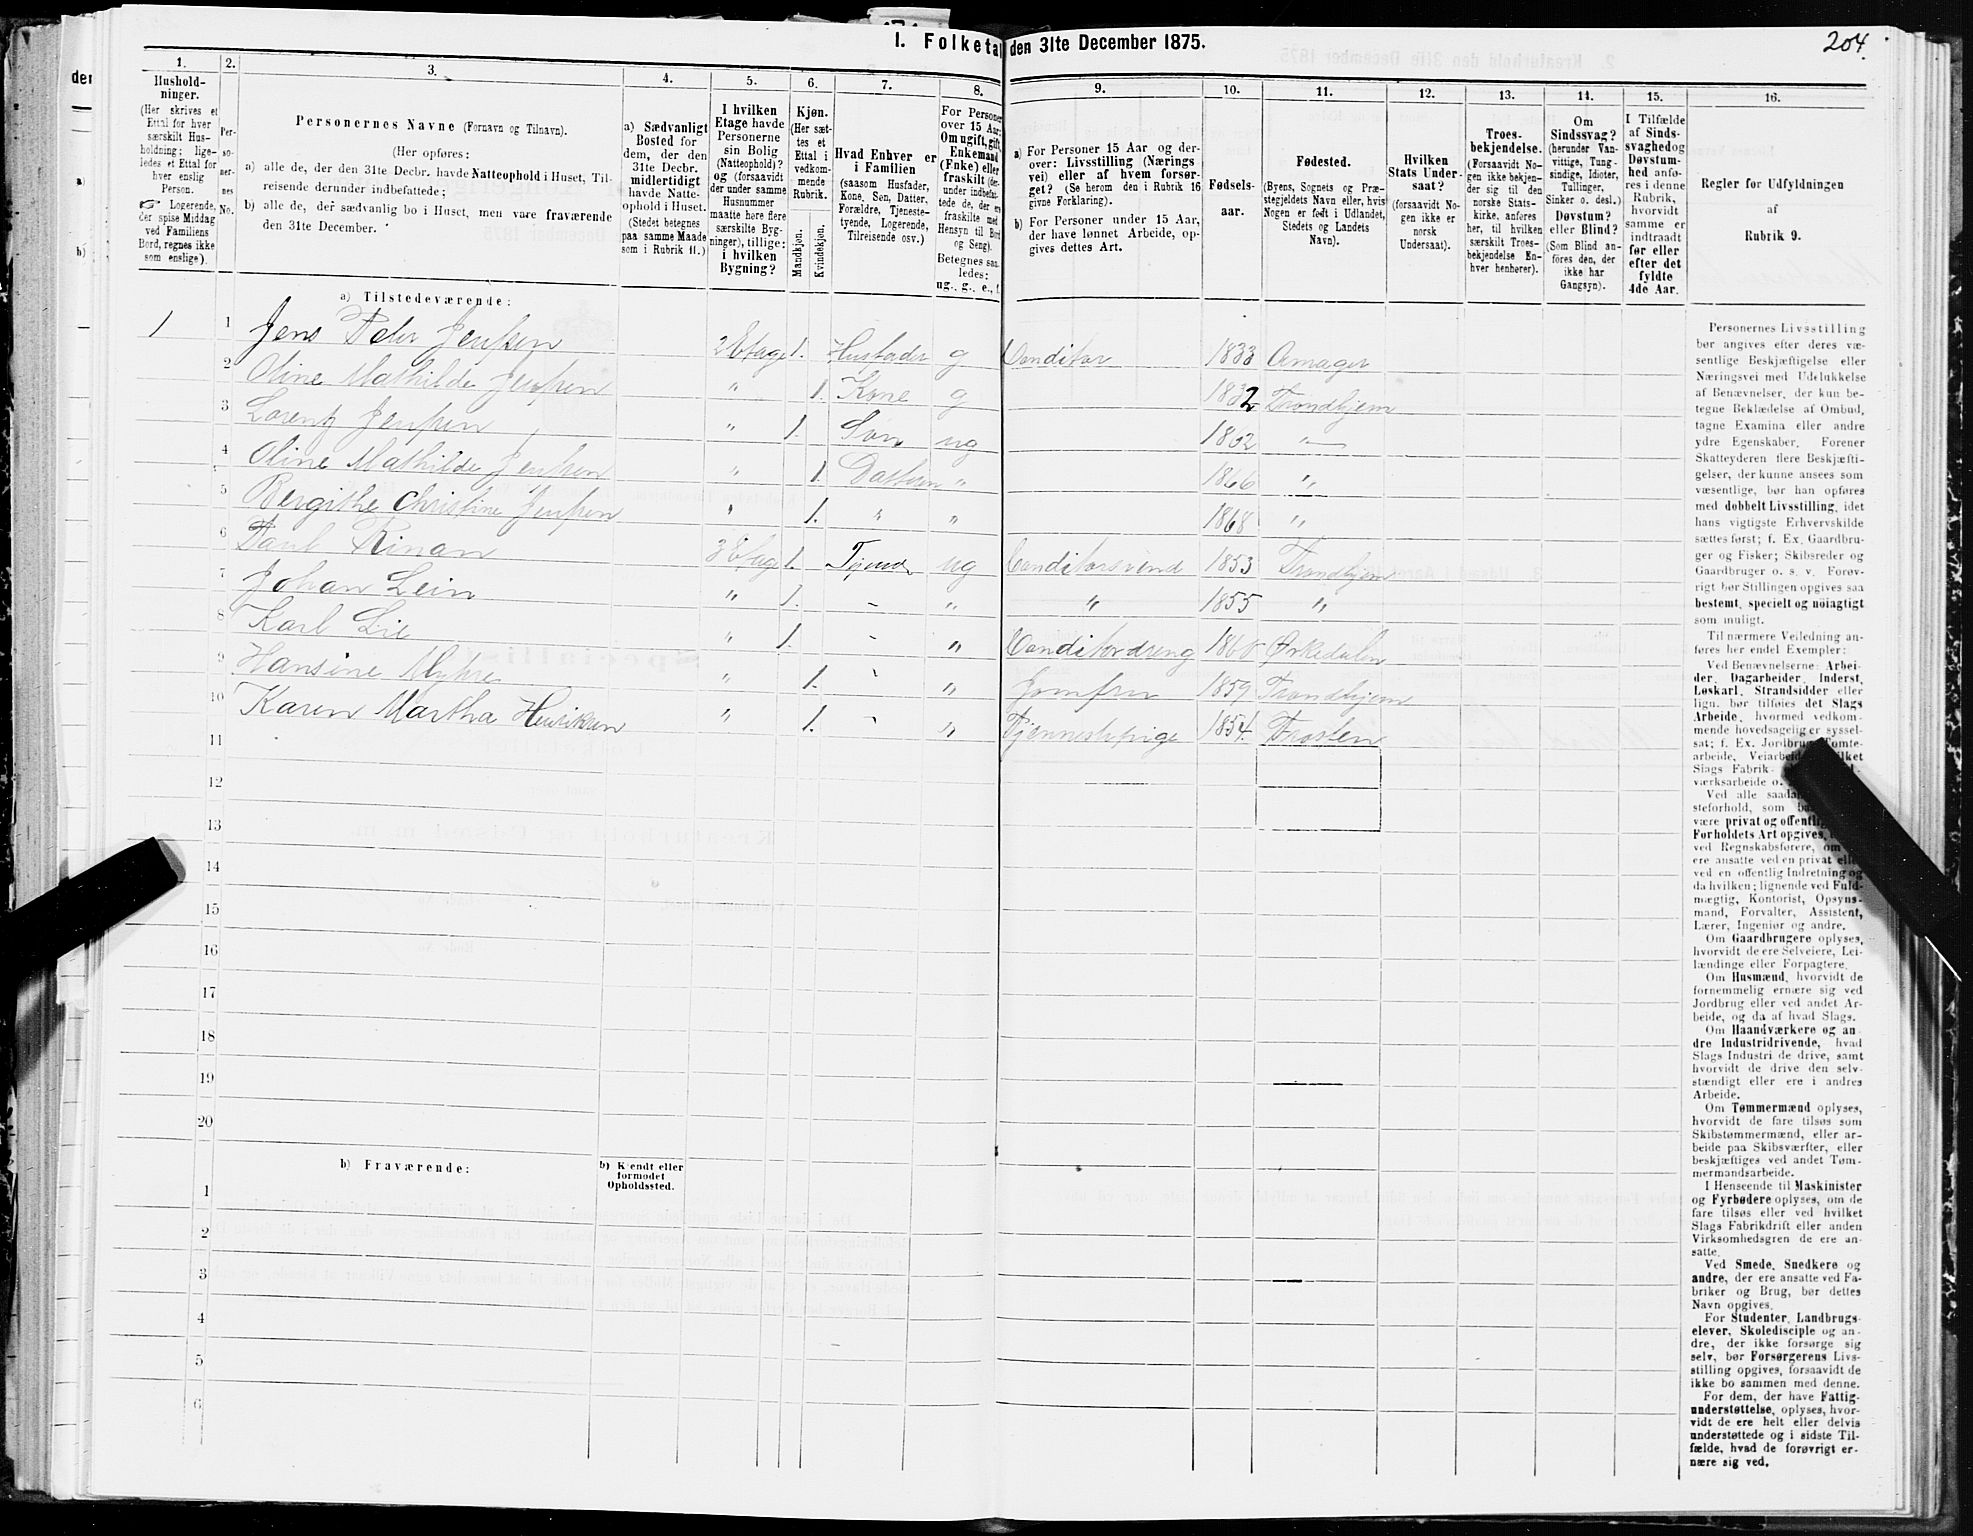 204.
I. Folketa den 31te December 1875.
1.
Hushold-
ninger.
(Her skrives et
Ettal for hver
særskilt Hus-
holdning; lige-
ledes et Ettal for
hver enslig
Person.
☞ Logerende,
der spise Middag
ved Familiens
Bord, regnes ikke
som enslige).
2.
Per-
so-
ner-
nes
No.
3.
Personernes Navne (Fornavn og Tilnavn).
(Her opføres:
a) alle de, der den 31te Decbr. havde Natteophold i Huset, Til-
reisende derunder indbefattede;
b) alle de, der sædvanlig bo i Huset, men vare fraværende
den 31te December.
4.
a) Sædvanligt
Bosted for
dem, der den
31te Decbr.
midlertidigt
havde Natte-
ophold i Huset.
(Stedet betegnes
paa samme Maade
som i Rubrik 11.)
5.
I hvilken
Etage havde
Personerne
sin Bolig
(Natteophold)?
og (forsaavidt
der under samme
Husnummer
maatte høre flere
særskilte Byg-
ninger), tillige:
i hvilken
Bygning?
6.
Kjøn.
(Her sæt-
tes et
Ettal i
vedkom-
mende
Rubrik.
Mandkjøn.
Kvindekjøn.
7.
Hvad Enhver er
i Familien
(saasom Husfader,
Kone, Søn, Datter,
Forældre, Tjeneste-
tyende, Logerende,
Tilreisende osv.)
8.
For Personer
over 15 Aar:
Om ugift, gift,
Enkemand
(Enke) eller
fraskilt (der-
under indbefat-
tede de, der ere
fraskilte med
Hensyn til Bord
og Seng).
Betegnes saa-
ledes:
ug., g., e., f.
9.
a) For Personer 15 Aar og der-
over: Livsstilling (Nærings
vei) eller af hvem forsør-
get? (Se herom den i Rubrik 16
givne Forklaring).
b) For Personer under 15 Aar,
der have lønnet Arbeide, op-
gives dettes Art.
10.
Fødsels-
aar.
11.
Fødested.
(Byens, Sognets og Præ-
stegjeldets Navn eller, hvis
Nogen er født i Udlandet,
Stedets og Landets
Navn).
12.
Hvilken
Stats Under-
saat?
(forsaavidt No-
gen ikke er
norsk
Undersaat).
13.
Troes-
bekjendelse.
(Forsaavidt No-
gen ikke bekjen-
der sig til den
norske Stats-
kirke, anføres
her, til hvilken
særskilt Troes-
bekjendelse En-
hver henhører).
14.
Om
Sindssvag?
(herunder Van-
vittige, Tung-
sindige, Idioter,
Tullinger,
Sinker o. desl.)
Døvstum?
eller Blind?
(Som Blind an-
føres den, der
ikke har
Gangsyn).
15.
I Tilfælde
af Sinds-
svaghedog
Døvstum-
hed anfø-
res i denne
Rubrik,
hvorvidt
samme er
indtraadt
før eller
efter det
fyldte
4de Aar.
16.
Regler for Udfyldningen
af
Rubrik 9.
a) Tilstedeværende:
1 1 Jens Peter Jensen 2 Etage 1. Husfader g Conditor 1833 Amager
2 Oline Mathilde Jensen " 1. Kone g 1832 Trondhjem
3 Lorentz Jensen " 1. Søn ug 1862 "
4 Oline Mathilde Jensen " 1. Datteren " 1866 "
5 Bergithe Christine Jensen " 1. " " 1868 "
6 Paul Rinan 3 Etage 1. Tjener ug Conditorsvend 1853 Trondhjem
7 Johan Lein " 1. - " " 1855 "
8 Karl Lie " 1. - " Conditordreng 1860 Ørkedalen
9 Hansine Myhre " 1. - " Jomfru 1859 Trondhjem
10 Karen Martha Henriksen " 1. - " Tjennestepige 1854. Frosten
11
12
13
14
15
16
17
18
19
20
b) Fraværende:
b) Kjendt eller
formodet
Opholdssted.
1
2
3
4
5
6
Personernes Livsstilling
bør angives efter deres væ-
sentlige Beskjæftigelse eller
Næringsvei med Udelukkelse
af Benævnelser, der kun be-
tegne Beklædelse af Ombud,
tagne Examina eller andre
ydre Egenskaber. Forener
Skatteyderen flere Beskjæfti-
gelser, der kunne ansees som
væsentlige, bør han opføres
med dobbelt Livsstilling, idet
hans vigtigste Erhvervskilde
sættes først; f. Ex. Gaardbru-
ger og Fisker; Skibsreder og
Gaardbruger o. s. v. Forøv-
rigt bør Stillingen opgives saa
bestemt, specielt og nøiagtigt
som muligt.
Til nærmere Veiledning an-
føres her endel Exempler:
Ved Benævnelserne: Arbei-
der, Dagarbeider, Inderst,
Løskarl, Strandsidder eller
lign. bør tilføies det Slags
Arbeide, hvormed vedkom-
mende hovedsagelig er syssel-
sat; f. Ex. Jordbrug, Tomte-
arbeide, Veiarbeide, hvilket
Slags Fabrik-
værksarbeide o.
Ved alle saada
steforhold, som
være privat og offentlig
Forholdets Art opgives,
ved Regnskabsførere, om
ere ansatte ved en privat eller
ved en offentlig Indretning og
da hvilken; lignende ved Fuld-
mægtig, Kontorist, Opsyns-
mand, Forvalter, Assistent,
Lærer, Ingeniør og andre.
Om Gaardbrugere oplyses,
hvorvidt de ere Selveiere, Lei-
lændinge eller Forpagtere.
Om Husmænd, hvorvidt de
fornemmelig ernære sig ved
Jordbrug eller ved andet Ar-
beide, og da af hvad Slags.
Om Haandværkere og an-
dre Industridrivende, hvad
Slags Industri de drive, samt
hvorvidt de drive den selv-
stændigt eller ere i andres
Arbeide.
Om Tømmermænd oplyses,
hvorvidt de fare tilsøs som
Skibstømmermænd, eller ar-
beide paa Skibsværfter, eller
beskjæftiges ved andet Tøm-
mermandsarbeide.
I Henseende til Maskinister
og Fyrbødere oplyses, om de
fare tilsøs eller ved hvilket
Slags Fabrikdrift eller anden
Virksomhedsgren de ere an-
satte.
Ved Smede, Snedkere og
andre, der ere ansatte ved Fa-
briker og Brug, bør dettes
Navn opgives.
For Studenter, Landbrugs-
elever, Skoledisciple og an-
dre, der ikke forsørge sig
selv, bør Forsørgerens Livs-
stilling opgives, forsaavidt de
ikke bo sammen med denne.
For dem, der have Fattig-
understøttelse, oplyses, hvor-
vidt de ere helt eller delvis
understøttede og i sidste Til-
fælde, hvad de forøvrigt er-
nære sig ved.